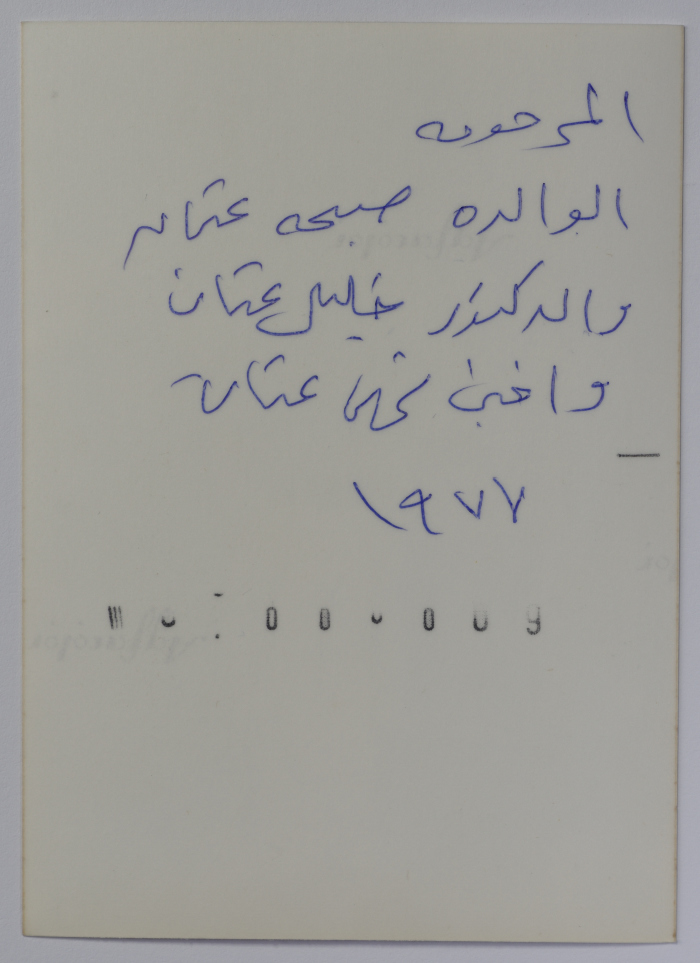 المرحومه
الوالده صبحه عثمان
والدكتور خليل عثمان
واختي عثمان
١٩٧٧